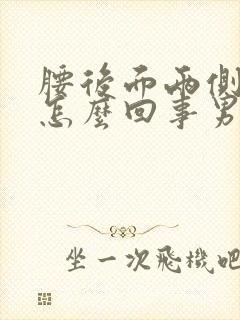 腰後而兩側
怎麼回事男
坐一次飛機吧